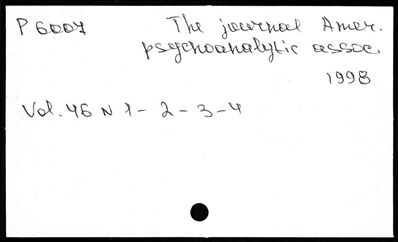 P 6007 The journal Amer.
psychoanalytic assoc.
1998
Vol. 46 N 1 - 2 - 3 - 4